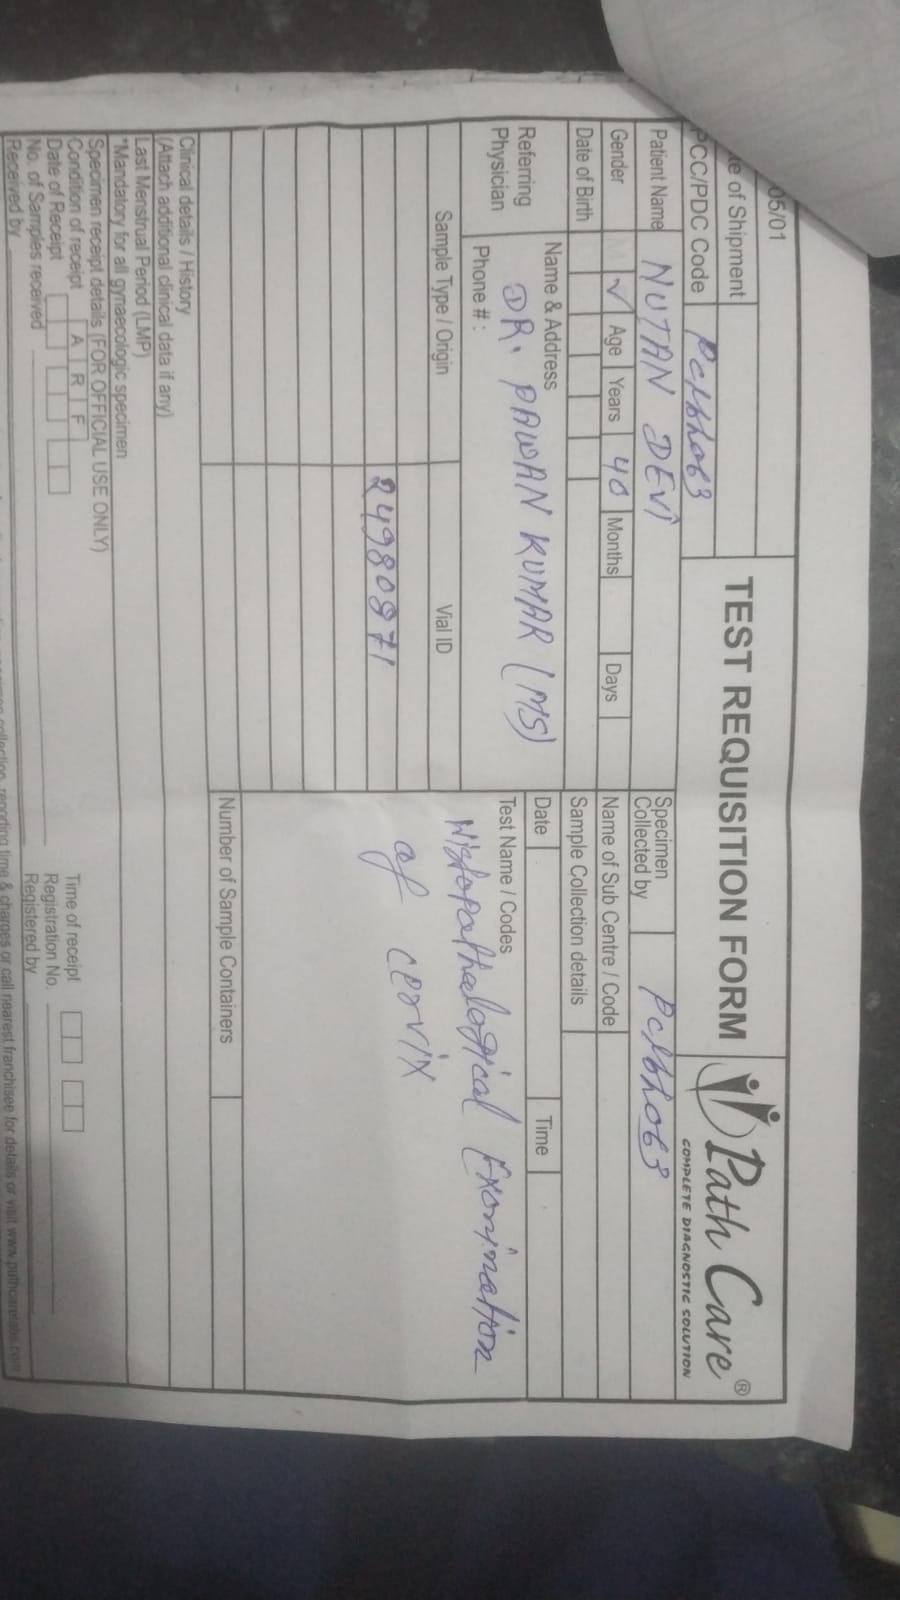 05/01
te of Shipment
PCC/PDC Code
TEST REQUISITION FORM
Path Care®
COMPLETE DIAGNOSTIC SOLUTION
Patient Name NUTAN DEVI
Specimen
Collected by
Gender ✓ Age Years 40 Months Days
Name of Sub Centre / Code
Date of Birth
Sample Collection details
Referring
Physician
Name & Address
DR. PAWAN KUMAR (MS)
Phone # :
Date Time
Sample Type / Origin Vial ID
Test Name / Codes
Histopathological Exomination
of cervix
24980871
Number of Sample Containers
Clinical details / History
(Attach additional clinical data if any)
Last Menstrual Period (LMP)
*Mandatory for all gynaecologic specimen
Specimen receipt details (FOR OFFICIAL USE ONLY)
Condition of receipt A R F
Time of receipt
Date of Receipt
Registration No.
No. of Samples received
Registered by
Received by
collection, reporting time & charges or call nearest franchisee for details or visit www.pathcarelabs.com